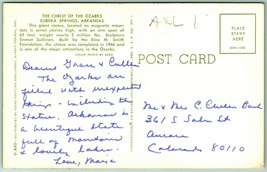 THE CHRIST OF THE OZARKS
EUREKA SPRINGS, ARKANSAS
This giant statue, located on magnetic mountain is seven stories high, with an arm span of
65 feet, weight nearly 2 million lbs. Sculpture
Emmet Sullivan. Built by the Elna M. Smith
Foundation, the statue was completed in 1966 and
is one of the major attractions in the Ozarks.
AXL 1
PLACE
STAMP
HERE
POST CARD
Dear Grace &
The Ozarks are
filled with unexpected
things - including this
statue. Arkansas is
a beautiful state
full of mountains
& lovely lakes.
Love, Marie
Mr & Mrs C.
361 S
Aurora
Colorado 80110